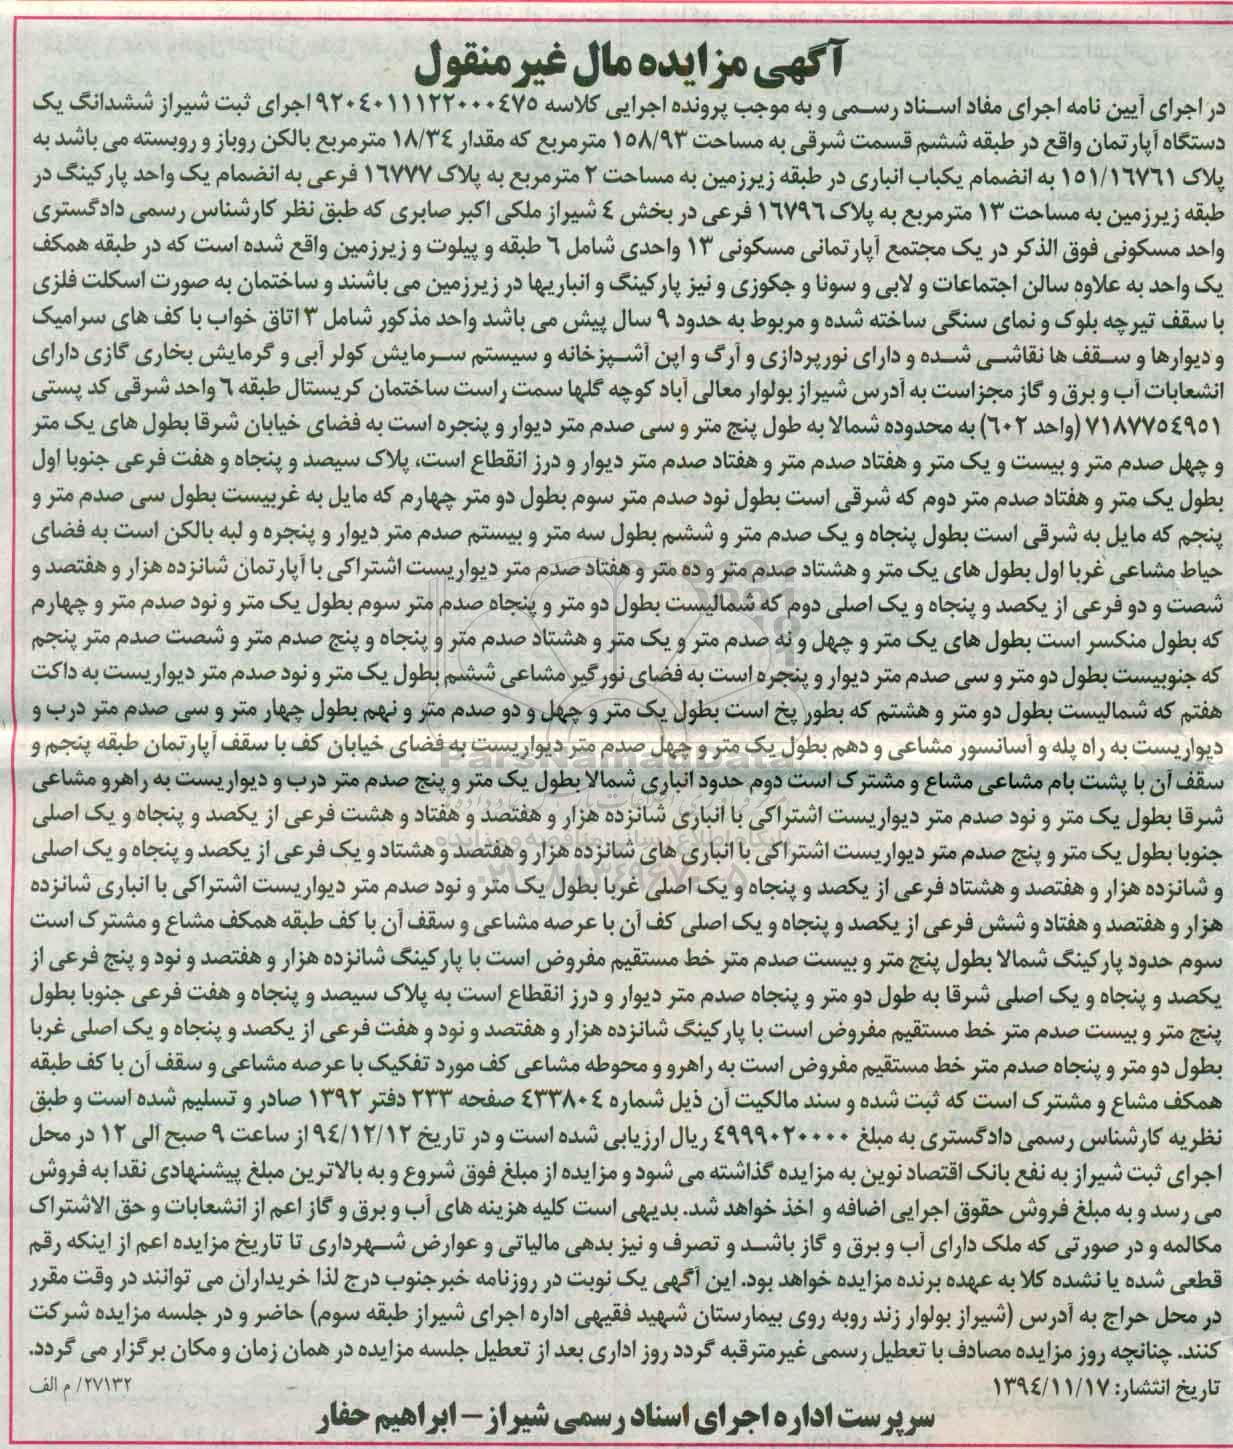 آگهی مزایده مال غیر منقول
در اجرای آیین نامه اجرای مفاد اسناد رسمی و به موجب پرونده اجرایی کلاسه ۹۲۰۴۰۱۱۱۲۲۰۰۰۴۷۵ اجرای ثبت شیراز ششدانگ یک
دستگاه آپارتمان واقع در طبقه ششم قسمت شرقی به مساحت ۱۵۸/۹۳ مترمربع که مقدار ۱۸/۳۴ مترمربع بالکن روباز و روبسته می باشد به
پلاک ۱۵۱/۱۶۷۶۱ به انضمام یکباب انباری در طبقه زیرزمین به مساحت ۲ مترمربع به پلاک ۱۶۷۷۷ فرعی به انضمام یک واحد پارکینگ در
طبقه زیرزمین به مساحت ۱۳ مترمربع به پلاک ۱۶۷۹۶ فرعی در بخش ۴ شیراز ملکی اکبر صابری که طبق نظر کارشناس رسمی دادگستری
واحد مسکونی فوق الذکر در یک مجتمع آپارتمانی مسکونی ۱۳ واحدی شامل ۶ طبقه و پیلوت و زیرزمین واقع شده است که در طبقه همکف
یک واحد به علاوه سالن اجتماعات و لابی و سونا و جکوزی و نیز پارکینگ و انباریها در زیرزمین می باشند و ساختمان به صورت اسکلت فلزی
با سقف تیرچه بلوک و نمای سنگی ساخته شده و مربوط به حدود ۹ سال پیش می باشد واحد مذکور شامل ۳ اتاق خواب با کف های سرامیک
و دیوارها و سقف ها نقاشی شده و دارای نورپردازی و آرگ و اپن آشپزخانه و سیستم سرمایش کولر آبی و گرمایش بخاری گازی دارای
انشعابات آب و برق و گاز مجزاست به آدرس شیراز بولوار معالی آباد کوچه گلها سمت راست ساختمان کریستال طبقه ۶ واحد شرقی کد پستی
۷۱۸۷۷۵۴۹۵۱ (واحد ۶۰۲) به محدوده شمالا به طول پنج متر و سی صدم متر دیوار و پنجره است به فضای خیابان شرقا بطول های یک متر
و چهل صدم متر و بیست و یک متر و هفتاد صدم متر و هفتاد صدم متر دیوار و درز انقطاع است، پلاک سیصد و پنجاه و هفت فرعی جنوبا اول
بطول یک متر و هفتاد صدم متر دوم که شرقی است بطول نود صدم متر سوم بطول دو متر چهارم که مایل به غربیست بطول سی صدم متر و
پنجم که مایل به شرقی است بطول پنجاه و یک صدم متر و ششم بطول سه متر و بیستم صدم متر دیوار و پنجره و لبه بالکن است به فضای
حیاط مشاعی غربا اول بطول های یک متر و هشتاد صدم متر و ده متر و هفتاد صدم متر دیواریست اشتراکی با آپارتمان شانزده هزار و هفتصد و
شصت و دو فرعی از یکصد و پنجاه و یک اصلی دوم که شمالیست بطول دو متر و پنجاه صدم متر سوم بطول یک متر و نود صدم متر و چهارم
که بطول منکسر است بطول های یک متر و چهل و نه صدم متر و یک متر و هشتاد صدم متر و پنجاه و پنج صدم متر و شصت صدم متر پنجم
که جنوبیست بطول دو متر و سی صدم متر دیوار و پنجره است به فضای نورگیر مشاعی ششم بطول یک متر و نود صدم متر دیواریست به داکت
هفتم که شمالیست بطول دو متر و هشتم که بطور پخ است بطول یک متر و چهل و دو صدم متر و نهم بطول چهار متر و سی صدم متر درب و
دیواریست به راه پله و آسانسور مشاعی و دهم بطول یک متر و چهل صدم متر دیواریست به فضای خیابان کف با سقف آپارتمان طبقه پنجم و
سقف آن با پشت بام مشاعی مشاع و مشترک است دوم حدود انباری شمالا بطول یک متر و پنج صدم متر درب و دیواریست به راهرو مشاعی
شرقا بطول یک متر و نود صدم متر دیواریست اشتراکی با انباری شانزده هزار و هفتصد و هفتاد و هشت فرعی از یکصد و پنجاه و یک اصلی
جنوبا بطول یک متر و پنج صدم متر دیواریست اشتراکی با انباری های شانزده هزار و هفتصد و هشتاد و یک فرعی از یکصد و پنجاه و یک اصلی
و شانزده هزار و هفتصد و هشتاد فرعی از یکصد و پنجاه و یک اصلی غربا بطول یک متر و نود صدم متر دیواریست اشتراکی با انباری شانزده
هزار و هفتصد و هفتاد و شش فرعی از یکصد و پنجاه و یک اصلی کف آن با عرصه مشاعی و سقف آن با کف طبقه همکف مشاع و مشترک است
سوم حدود پارکینگ شمالا بطول پنج متر و بیست صدم متر خط مستقیم مفروض است با پارکینگ شانزده هزار و هفتصد و نود و پنج فرعی از
یکصد و پنجاه و یک اصلی شرقا به طول دو متر و پنجاه صدم متر دیوار و درز انقطاع است به پلاک سیصد و پنجاه و هفت فرعی جنوبا بطول
پنج متر و بیست صدم متر خط مستقیم مفروض است با پارکینگ شانزده هزار و هفتصد و نود و هفت فرعی از یکصد و پنجاه و یک اصلی غربا
بطول دو متر و پنجاه صدم متر خط مستقیم مفروض است به راهرو و محوطه مشاعی کف مورد تفکیک با عرصه مشاعی و سقف آن با کف طبقه
همکف مشاع و مشترک است که ثبت شده و سند مالکیت آن ذیل شماره ۴۳۳۸۰۴ صفحه ۲۳۳ دفتر ۱۳۹۲ صادر و تسلیم شده است و طبق
نظریه کارشناس رسمی دادگستری به مبلغ ۴۹۹۹۰۲۰۰۰۰ ریال ارزیابی شده است و در تاریخ ۹۴/۱۲/۱۲ از ساعت ۹ صبح الی ۱۲ در محل
اجرای ثبت شیراز به نفع بانک اقتصاد نوین به مزایده گذاشته می شود و مزایده از مبلغ فوق شروع و به بالاترین مبلغ پیشنهادی نقدا به فروش
می رسد و به مبلغ فروش حقوق اجرایی اضافه و اخذ خواهد شد. بدیهی است کلیه هزینه های آب و برق و گاز اعم از انشعابات و حق الاشتراک
مکالمه و در صورتی که ملک دارای آب و برق و گاز باشد و تصرف و نیز بدهی مالیاتی و عوارض شهرداری تا تاریخ مزایده اعم از اینکه رقم
قطعی شده یا نشده کلا به عهده برنده مزایده خواهد بود. این آگهی یک نوبت در روزنامه خبرجنوب درج لذا خریداران می توانند در وقت مقرر
در محل حراج به آدرس (شیراز بولوار زند روبه روی بیمارستان شهید فقیهی اداره اجرای شیراز طبقه سوم) حاضر و در جلسه مزایده شرکت
کنند. چنانچه روز مزایده مصادف با تعطیل رسمی غیرمترقبه گردد روز اداری بعد از تعطیل جلسه مزایده در همان زمان و مکان برگزار می گردد.
تاریخ انتشار: ۱۳۹۴/۱۱/۱۷
۲۷۱۳۲/ م الف
سرپرست اداره اجرای اسناد رسمی شیراز – ابراهیم حفار
ParsNamadData